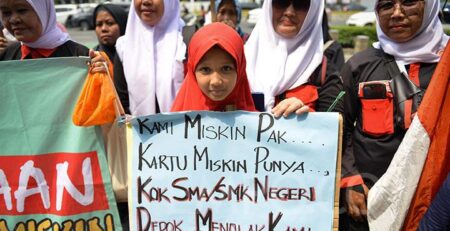 KAMI MISKIN PAK.....
KARTU MISKIN PUNYA...,
KOK SMA/SMK NEGERI
DEPOK MENOLAK KAMI
AAN
MISKIN